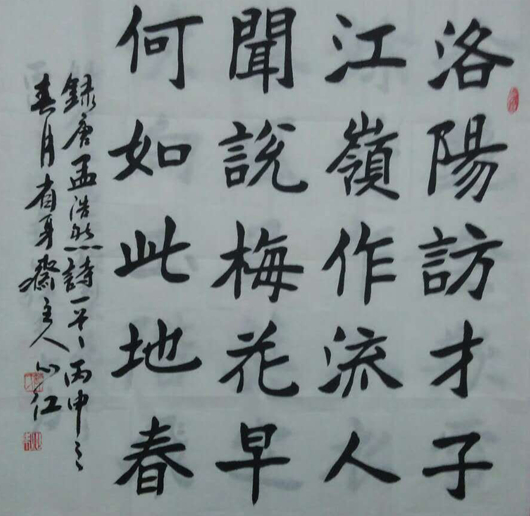 洛陽訪才子
江嶺作流人
聞説梅花早
何如此地春
録唐孟浩然詩一首丙申之
春月有身齋主人心江